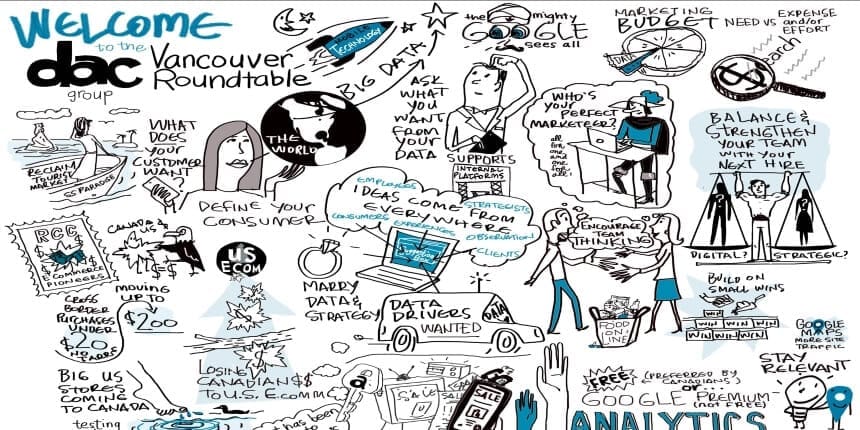 WELCOME
to the
dac
group
Vancouver
Roundtable
MOBILE
TECHNOLOGY
BIG DATA
the mighty
GOOGLE
sees all
MARKETING
BUDGET
DATA
NEED VS EXPENSE
and/or
EFFORT
Search
RECLAIM
TOURIST
MARKET
SS PARADISE
WHAT
DOES
YOUR
CUSTOMER
WANT
THE
WORLD
DEFINE YOUR
CONSUMER
ASK
WHAT
YOU
WANT
FROM
YOUR
DATA
SUPPORTS
INTERNAL
PLATFORMS
WHO'S
YOUR
PERFECT
MARKETEER?
all
for
one
and
one
for
all!
BALANCE &
STRENGTHEN
YOUR TEAM
WITH YOUR
NEXT HIRE
DIGITAL?
STRATEGIC?
EMPLOYEES
STRATEGISTS
IDEAS COME FROM
EVERYWHERE
CONSUMERS
EXPERIENCES
OBSERVATION
CLIENTS
ENCOURAGE
TEAM
THINKING
RCC
E COMMERCE
PIONEERS
CANADA
VS
US
US
E COM
MOVING
UP TO
$200
CROSS
BORDER
PURCHASES
UNDER
$20
MARRY
DATA &
STRATEGY
DATA
DRIVERS
WANTED
DATA
FOOD
ON
LINE
BUILD ON
SMALL WINS
WIN WIN WIN
WIN WIN WIN WIN
GOOGLE
MAPS
MORE SITE
TRAFFIC
BIG US
STORES
COMING
TO CANADA
testing
LOSING
CANADIAN $$
TO U.S. E.COMM
it has been
SALE
SALE
FREE (PREFERRED BY
CANADIANS)
OR...
GOOGLE PREMIUM
(not FREE)
ANALYTICS
STAY
RELEVANT